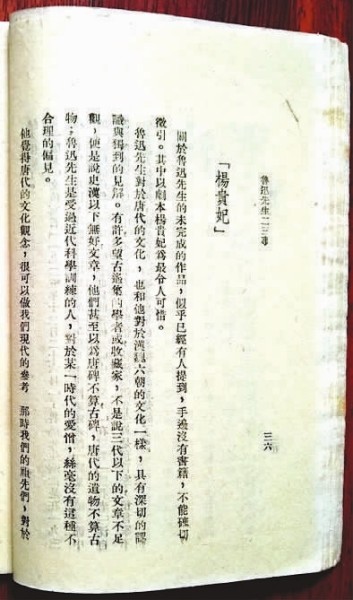 魯迅先生二三事
三六
「楊貴妃」
關於魯迅先生的未完成的作品，似乎已經有人提到，手邊沒有書籍，不能確切
徵引。其中以劇本楊貴妃爲最令人可惜。
魯迅先生對於唐代的文化，也和他對於漢魏六朝的文化一樣，具有深切的認
識與獨到的見解。有許多望古遙集的學者或收藏家，不是說三代以下的文章不足
觀，便是說史漢以下無好文章，他們甚至以爲唐碑不算古碑，唐代的遺物不算古
物；魯迅先生是受過近代科學訓練的人，對於某一時代的愛憎，絲毫沒有這種不
合理的偏見。
他覺得唐代的文化觀念，很可以做我們現代的參考 那時我們的祖先們，對於